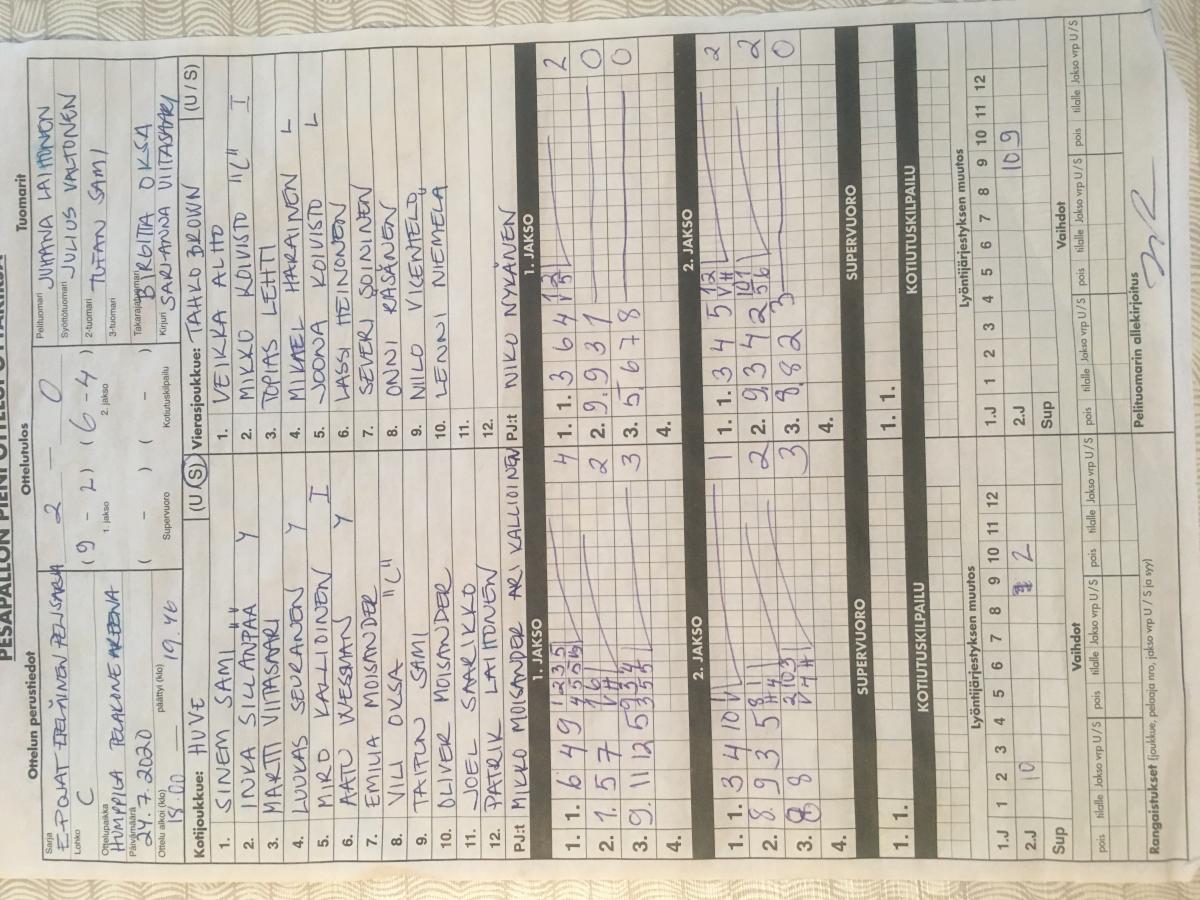 PESÄPALLON PIENI OTTELUPÖYTÄKIRJA
Ottelun perustiedot
Ottelutulos
Tuomarit
Sarja
E-POJAT ETELÄINEN
Lohko
C
Ottelupaikka
HUMPPILA
Päivämäärä
24.7.2020
Ottelu alkoi (klo)
18.00
päättyi (klo)
19.46
2 – 0
( 9 - 2 ) ( 6 - 4 )
1. jakso
2. jakso
( - ) ( - )
Supervuoro
Kotiutuskilpailu
Pelituomari
JUHANA LAIHONEN
Syöttötuomari
JULIUS VALTONEN
2-tuomari
SAMI
3-tuomari
Takarajatuomari
BIRGITTA OKSA
Kirjuri
SARI-ANNA VIITASAARI
Kotijoukkue: HUVE (U / S)
1. SINEM SAMI
2. INKA SILLANPÄÄ Y
3. MARTTI VIITASAARI
4. LUUKAS SEURANEN Y
5. MIRO KALLIOINEN Y I
6. AATU WESSMAN Y
7. EMILIA MOISANDER
8. VILI OKSA "C"
9. SAMI
10. OLIVER MOISANDER
11. JOEL SAARIKKO
12. PATRIK LAIHONEN
PJ:t MIKKO MOISANDER ARI KALLIOINEN
Vierasjoukkue: TAHKO BROWN (U / S)
1. VEIKKA ALHO
2. MIKKO KOIVISTO "C" I
3. TOPIAS LEHTI
4. MIKAEL HARAINEN L
5. JOONA KOIVISTO L
6. LASSI HEINONEN
7. SEVERI SOININEN
8. ONNI RÄSÄNEN
9. NILO
10. LENNI NIEMELÄ
11.
12.
PJ:t NIKO NYKÄNEN
1. JAKSO
1. 1. 6 4 9 4
2. 1. 5 7 2
3. 9. 11 12 5 3
4.
2. JAKSO
1. 1. 3 4 10 1
2. 8. 9 3 5 2
3. 8 3
4.
SUPERVUORO
1. 1.
KOTIUTUSKILPAILU
1. JAKSO
1. 1. 3 6 4 2
2. 9. 9 3 1 0
3. 5. 6 7 8 0
4.
2. JAKSO
1. 1. 3 4 5 2
2. 9. 3 4 2 2
3. 8. 8 2 3 0
4.
SUPERVUORO
1. 1.
KOTIUTUSKILPAILU
Lyöntijärjestyksen muutos
1.J 1 2 3 4 5 6 7 8 9 10 11 12
2.J 10 2
Sup
Vaihdot
pois tilalle Jakso vrp U / S pois tilalle Jakso vrp U / S pois tilalle Jakso vrp U / S
pois
Lyöntijärjestyksen muutos
1.J 1 2 3 4 5 6 7 8 9 10 11 12
2.J 10 9
Sup
Vaihdot
pois tilalle Jakso vrp U / S pois tilalle Jakso vrp U / S pois tilalle Jakso vrp U / S
pois
Rangaistukset (joukkue, pelaaja nro, jakso vrp U / S ja syy)
Pelituomarin allekirjoitus